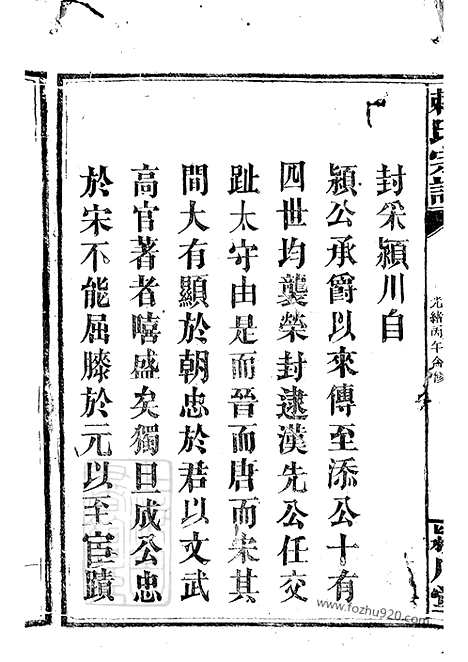 封采潁川自
潁公承爵以來傳至添公十有
四世均襲榮封逮漢先公任交
趾太守由是而晉而唐而宋其
間大有顯於朝忠於君以文武
高官著者嘻盛矣獨旦成公忠
於宋不能屈膝於元以至宦蹟
氏宗譜
光緒丙午合修
堂
www.fozhu920.com